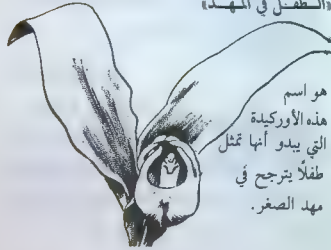 «الطفل في المهد»
هو اسم
هذه الأوركيدة
التي يبدو أنها تمثل
طفلًا يترجح في
مهد الصغر.